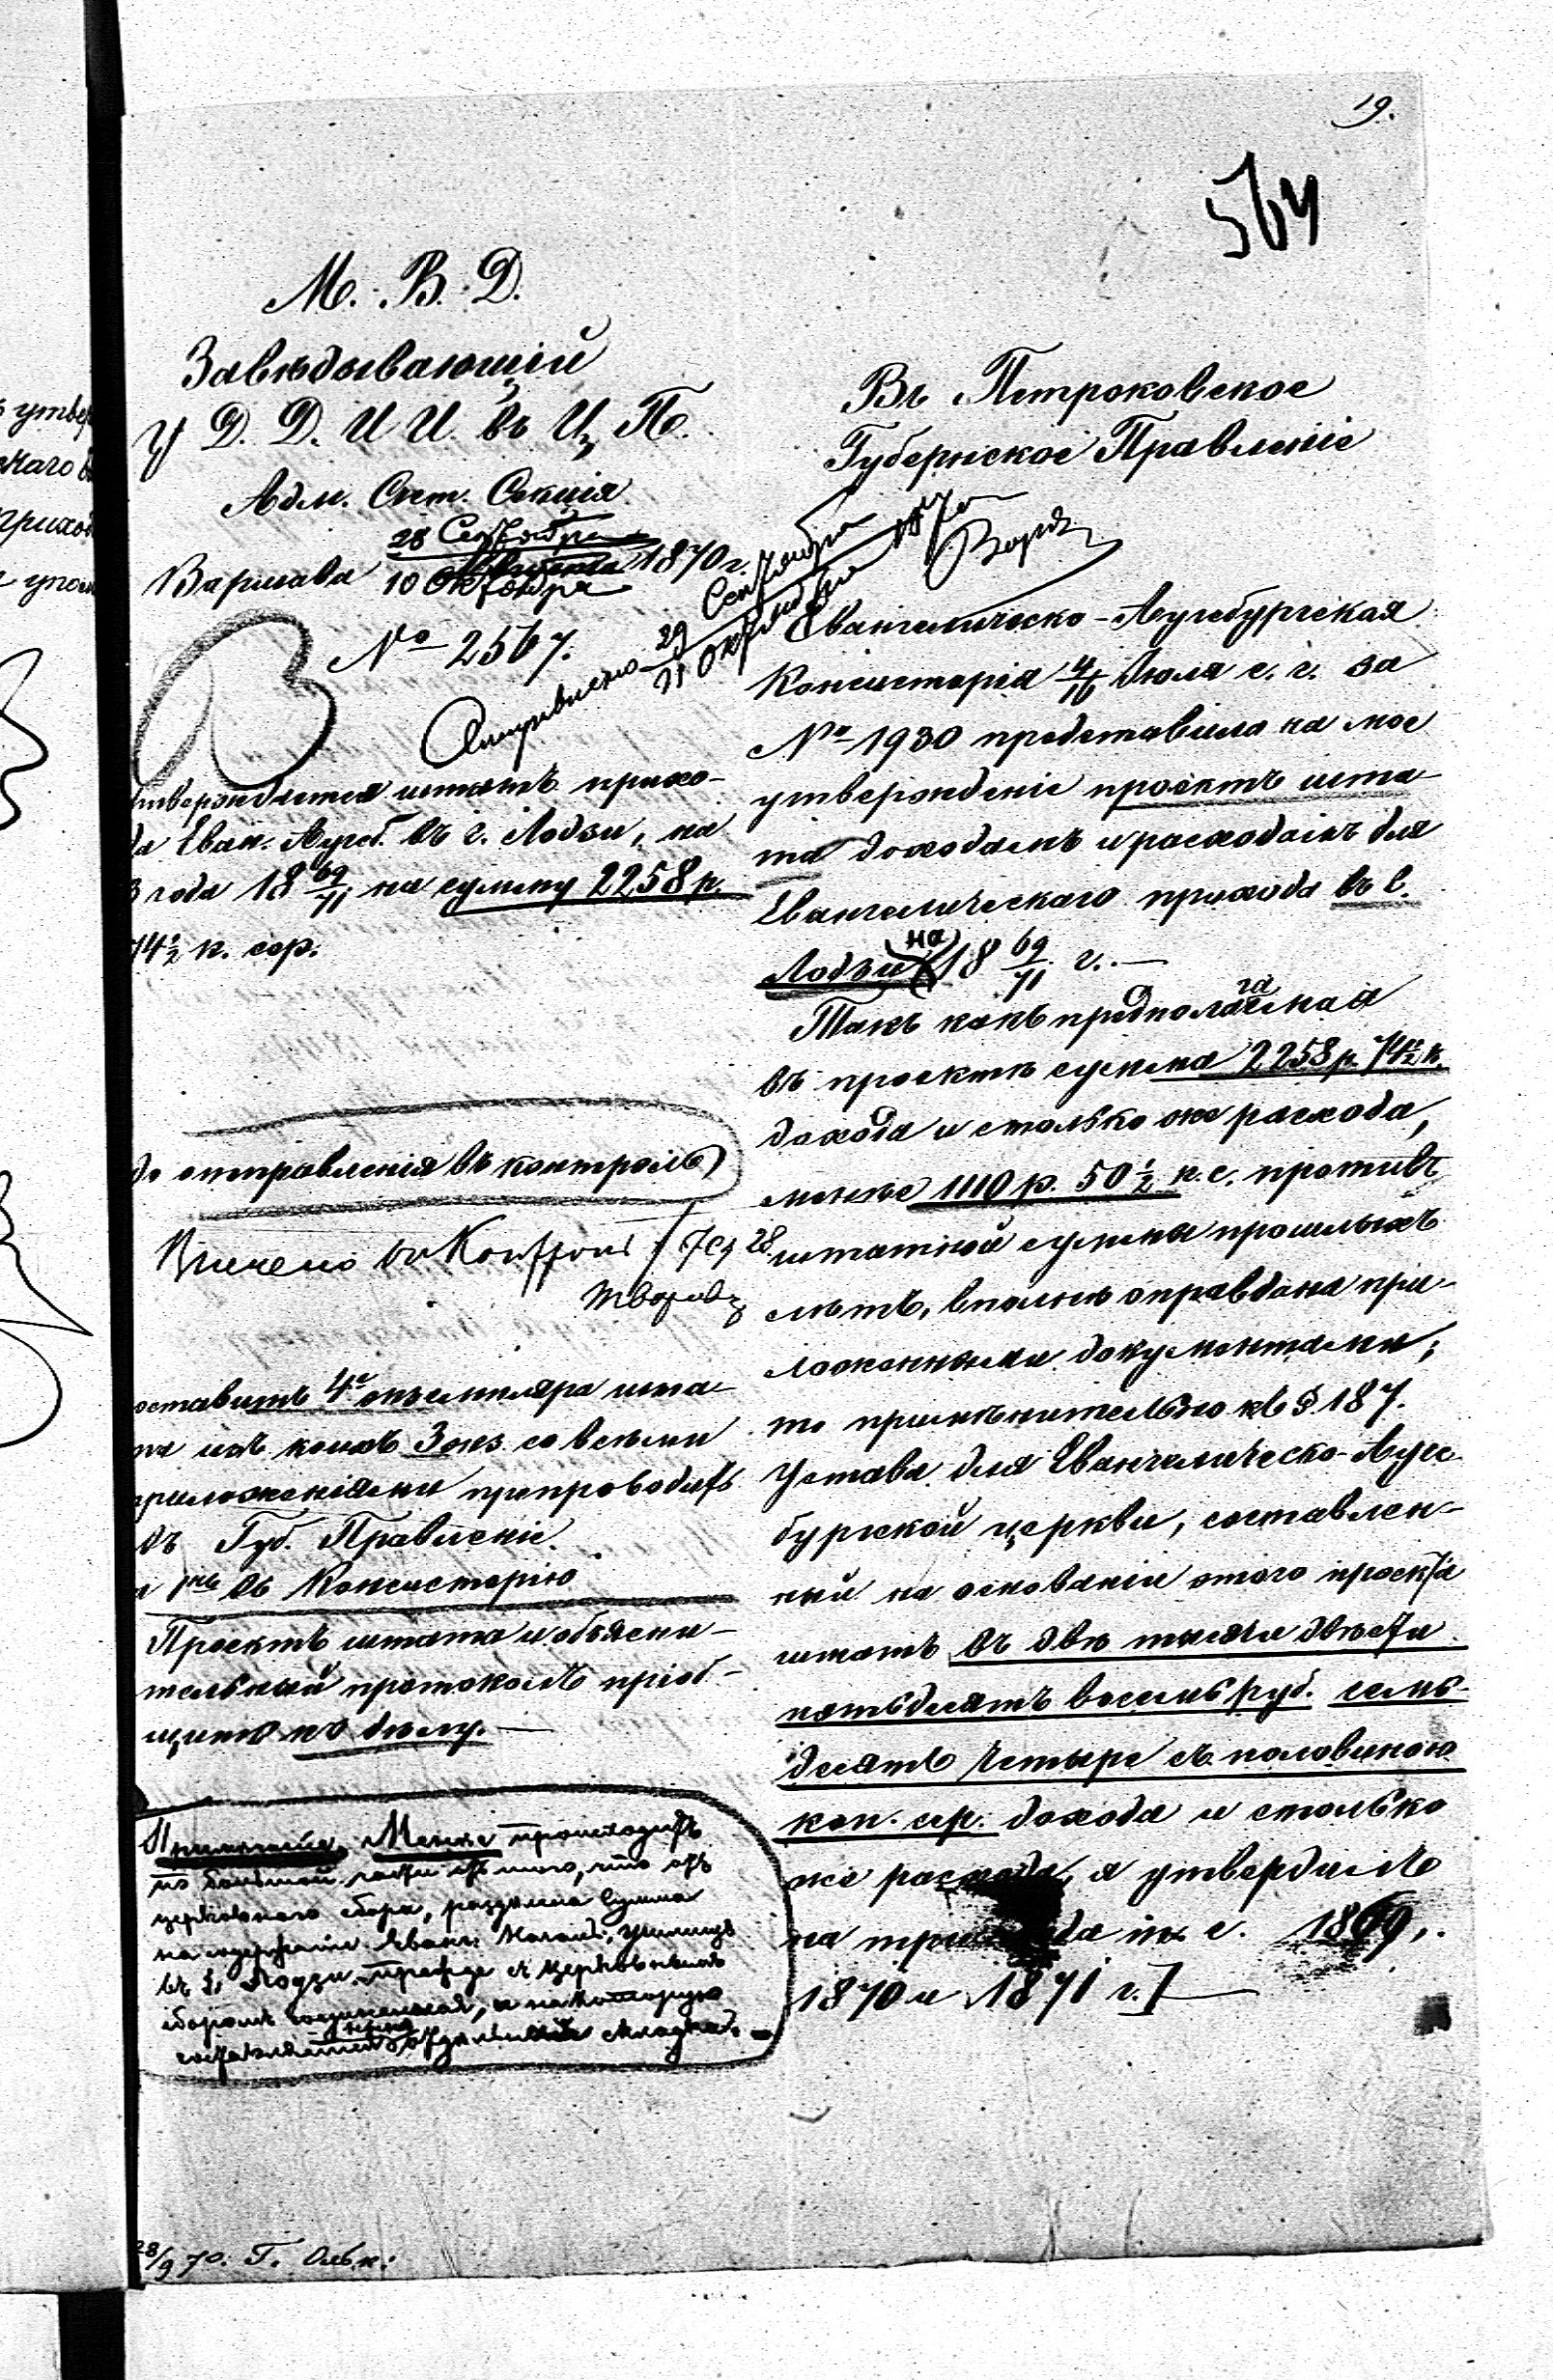 19.
564
М. В. Д.
Завѣдывающій
У Д. Д. И И. въ Ц. П.
Адм. Счет. Секція
Варшава 28 Сентября / 10 Октября 1870 г.
№ 2567.
Отправлено 29 Сентября / 11 Октября
утверждается штатъ прихо-
да Еван. Аугсб. въ г. Лодзи, на
3 года 18 69/71 на сумму 2258 р.
74½ к. сер.
до отправленія въ контроль
Внесено въ
оставить 4е экземпляра шта-
та изъ коихъ 3 экз. со всѣми
приложеніями препроводить
въ Губ. Правленіе.
а 1нъ въ Консисторію
Проектъ штата и объясни-
тельный протоколъ пріоб-
щить къ дѣлу. —
Примѣчаніе. Менѣе происходитъ
по большой части изъ того, что изъ
церковнаго сбора, раздѣлена сумма
на содержаніе Еванг. Училищъ
въ г. Лодзи прежде съ церковнымъ
сборомъ соединенная, и на которую
составляется отдѣльная складка. —
28/9 70. Г.
Въ Петроковское
Губернское Правленіе
Евангелическо-Аугсбургская
Консисторія 4/16 Іюля с. г. за
№ 1930 представила на мое
утвержденіе проектъ шта-
та доходамъ и расходамъ для
Евангелическаго прихода въ г.
Лодзи на 18 69/71 г. —
Такъ какъ предполагаемая
въ проектѣ сумма 2258 р. 74½ к.
дохода и столько же расхода,
менѣе 1110 р. 50½ к. с. противъ
штатной суммы прошлыхъ
лѣтъ, вполнѣ оправдана при-
ложенными документами;
то примѣнительно къ § 187.
Устава для Евангелическо-Аугс-
бургской церкви, составлен-
ный на основаніи этого проекта
штатъ въ двѣ тысячи двѣсти
пятьдесятъ восемь руб. семь-
десятъ четыре съ половиною
коп. сер. дохода и столько
же расхода, я утвердилъ
на три года т. е. 1869,
1870 и 1871 г. —